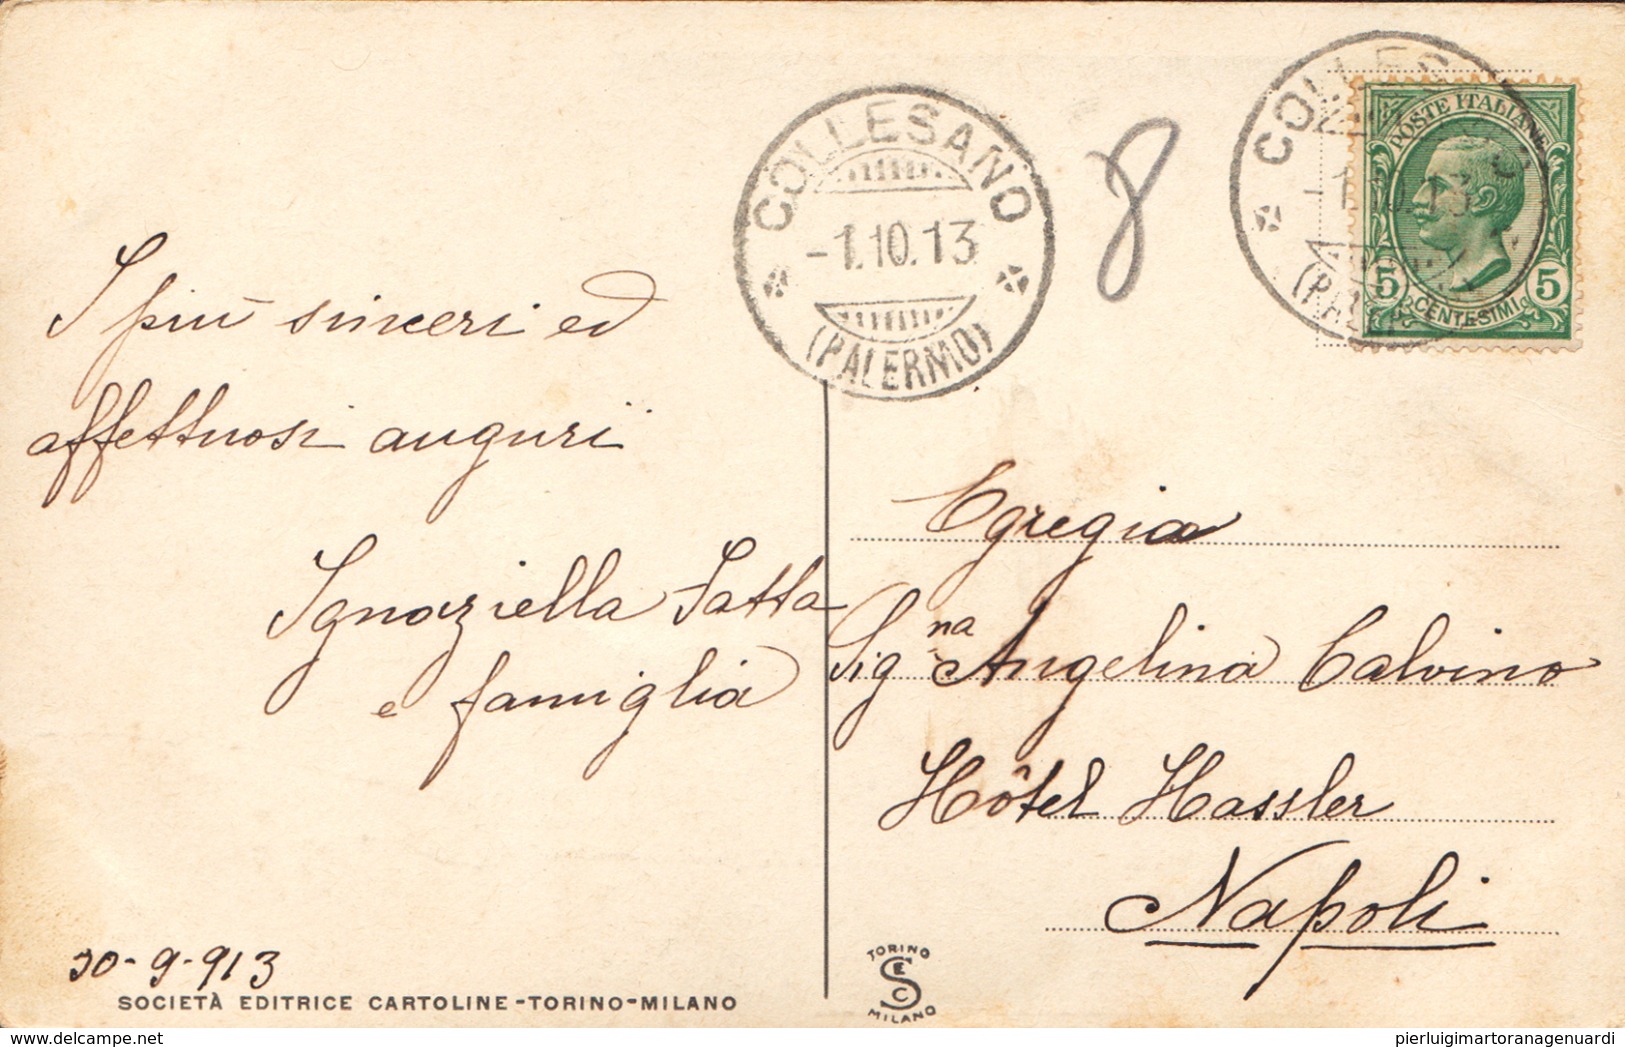 COLLESANO
-1.10.13
(PALERMO)
8
COLLES
-1.10.13
(PAL
POSTE ITALIANE
5 CENTESIMI 5
I più sinceri ed
affettuosi auguri
Ignaziella Fatta
e famiglia
30-9-913
Egregia
Signa Angelina Calvino
Hôtel Hassler
Napoli
SOCIETÀ EDITRICE CARTOLINE-TORINO-MILANO
TORINO
SEC
MILANO
delcampe.net
pierluigimartoranagenuardi